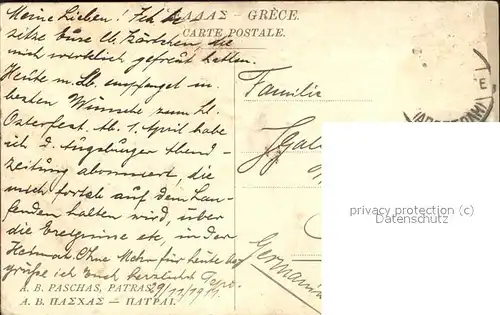 ΕΛΛΑΣ – GRÈCE.
CARTE POSTALE.
Meine Lieben! Ich be
sitze Eure lb. Kärtchen, die
mich wirklich gefreut hatten.
Heute m. Lb. empfanget m.
besten Wünsche zum lb.
Osterfest. Ab 1. April habe
ich d. Augsburger Abend-
zeitung abonniert, die
mich fortab auf dem Lau-
fenden halten wird, über
die Ereignisse etc. in der
Heimat. Ohne Mehr für heute
grüsse ich Euch herzlichst
29/11/1911.
Familie
Germania
privacy protection (c)
Datenschutz
A. B. PASCHAS, PATRAS.
Α. Β. ΠΑΣΧΑΣ — ΠΑΤΡΑΙ.